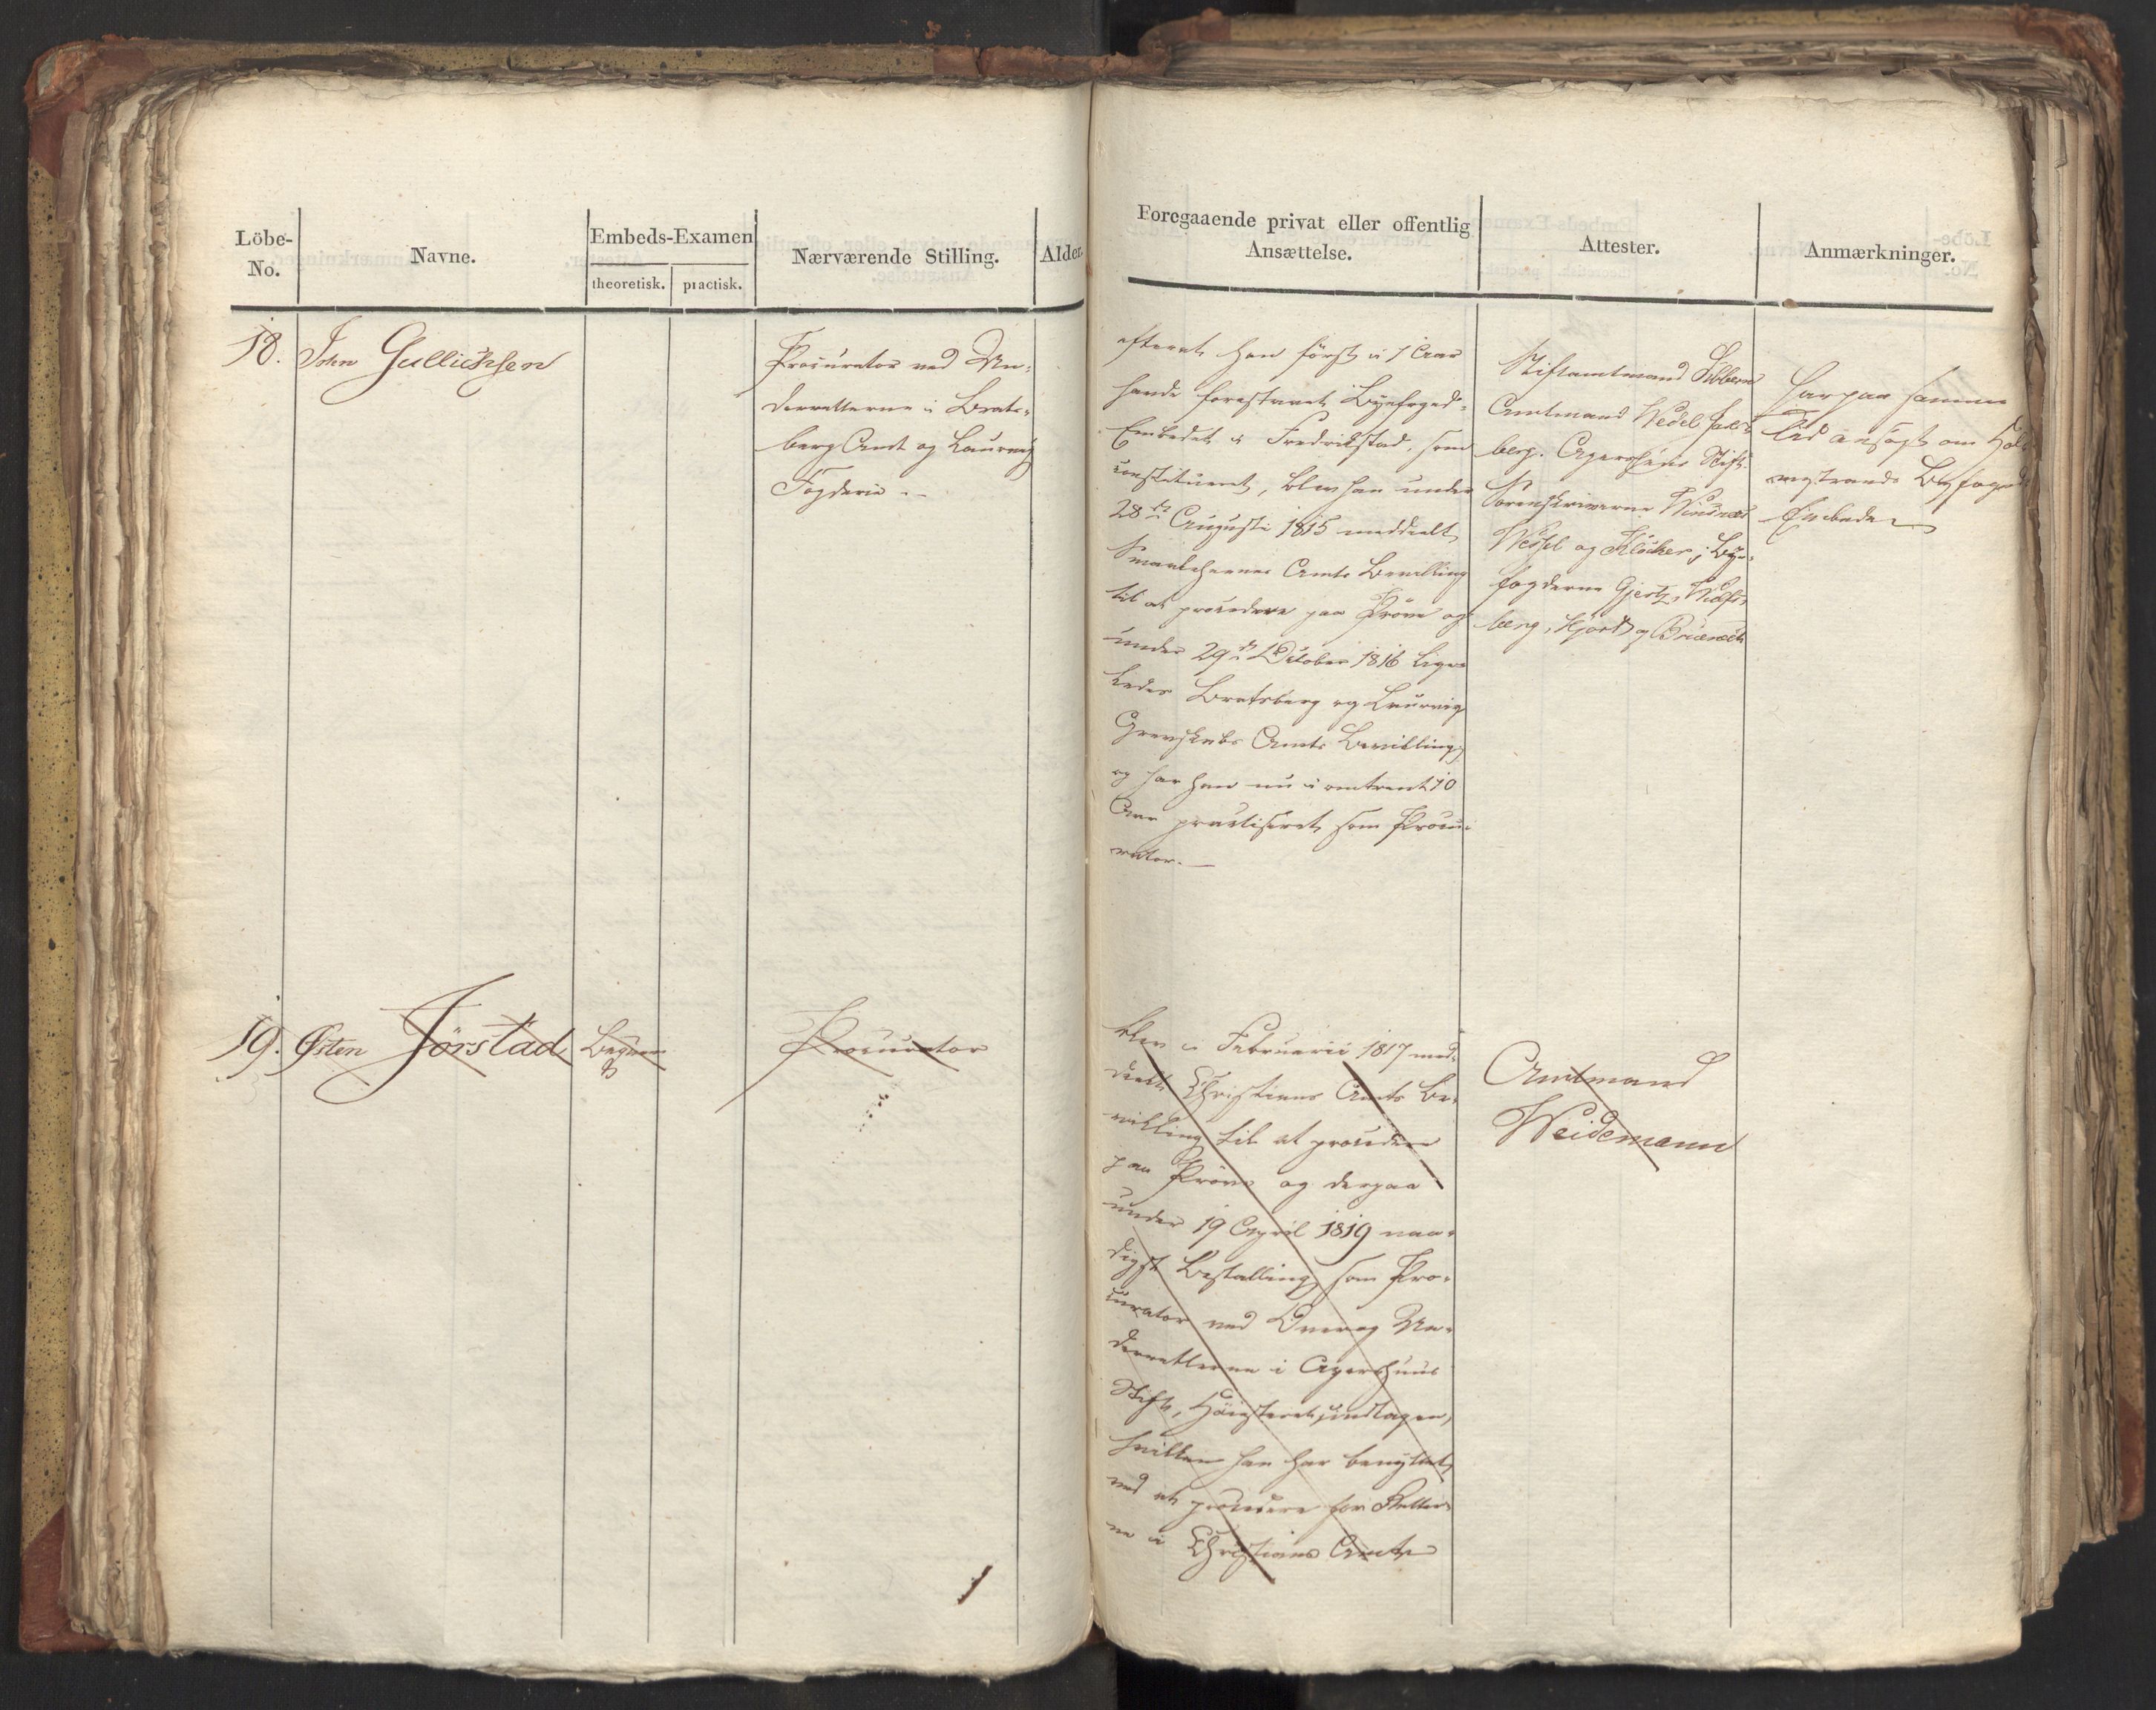 Löbe-
No.
Navne.
Embeds-Examen
theoretisk.
practisk.
Nærværende Stilling.
Alder.
18. John Gullichsen
Procurator ved Un-
derretterne i Brats-
berg Amt og Laurvig
Fogderie
19. Østen Jörstad
Procurator
Foregaaende privat eller offentlig
Ansættelse.
Attester.
Anmærkninger.
efterat han först i 1 Aar
havde forestaaet Byefoged-
Embedet i Fredrikstad, som
constitueret, blev han under
28de Augusti 1815 meddeelt
Smaalehnenes Amts Bevilling
til at procedere paa Pröve og
under 29de October 1816 lige-
ledes Bratsberg og Laurvig
Grevskabs Amts Bevilling,
og har han nu i omtrent 10
Aar practiseret som Procu-
rator.
Stiftamtmand Sibbern
Amtmand Wedel Jarls-
berg. Agershuus Stift.
Sorenskriverne
Wessel og Klöcker; Bye-
fogderne Gjertz,
berg, Hjort og
har paa samme
Tid ansögt om Hol-
mestrands Byfoged
Embede
blev i Februarii 1817 med-
deelt Christians Amts Be-
villing til at procedere
paa Pröve og derpaa
under 19 April 1819 naa-
digst Bestalling som Pro-
curator ved Over og Un-
derretterne i Agershuus
Stift, Höiesteret undtagen,
hvilken han har benyttet
ved at procedere for Retter-
ne i Christians Amt
Amtmand
Weidemann